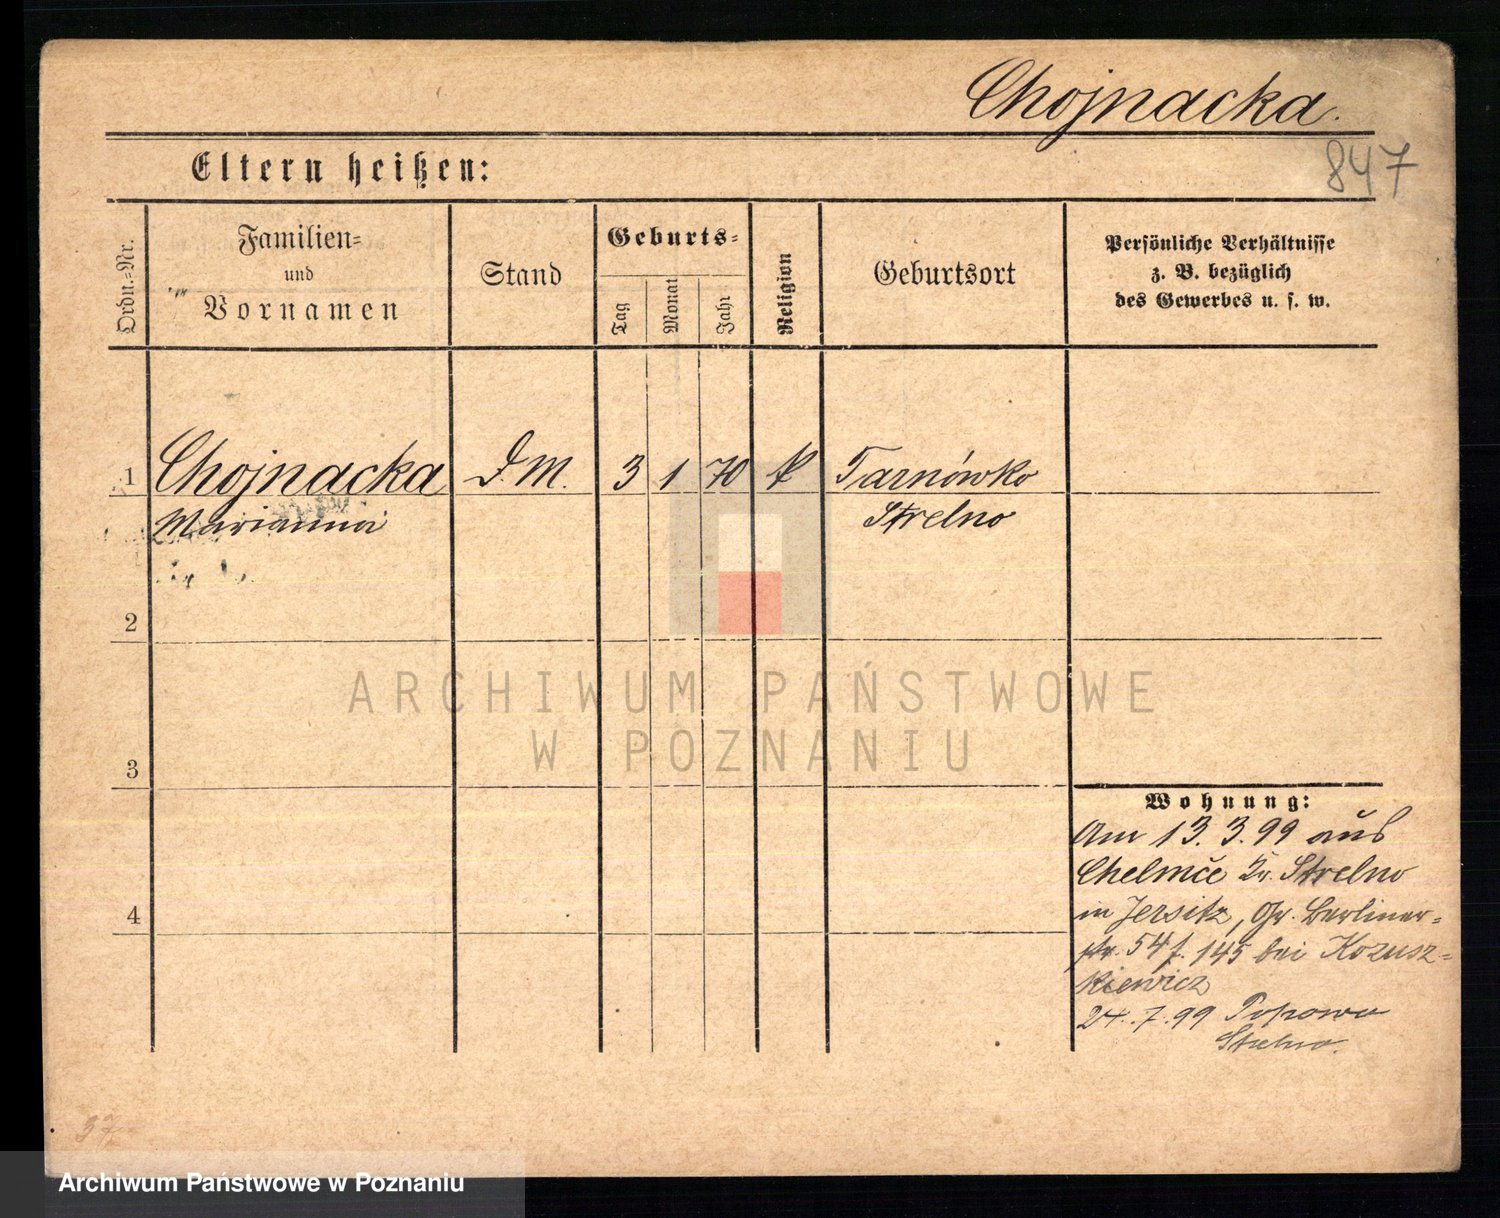 Chojnacka.
847
Eltern heißen:
Ordn.=Nr.
Familien=
und
Vornamen
Stand
Geburts=
Tag
Monat
Jahr
Religion
Geburtsort
Persönliche Verhältnisse
z. B. bezüglich
des Gewerbes u. s. w.
1 Chojnacka D. M. 3 1 70 k Tarnówko
Marianna Strelno
2
ARCHIWUM PAŃSTWOWE
W POZNANIU
3
Wohnung:
Am 13.3.99 aus
Chelmce Kr. Strelno
4
in Jersitz, Gr. Berliner=
str. 54 f. 145 bei Kozusz=
kiewicz
24.7.99 Popowo
Strelno.
37
Archiwum Państwowe w Poznaniu